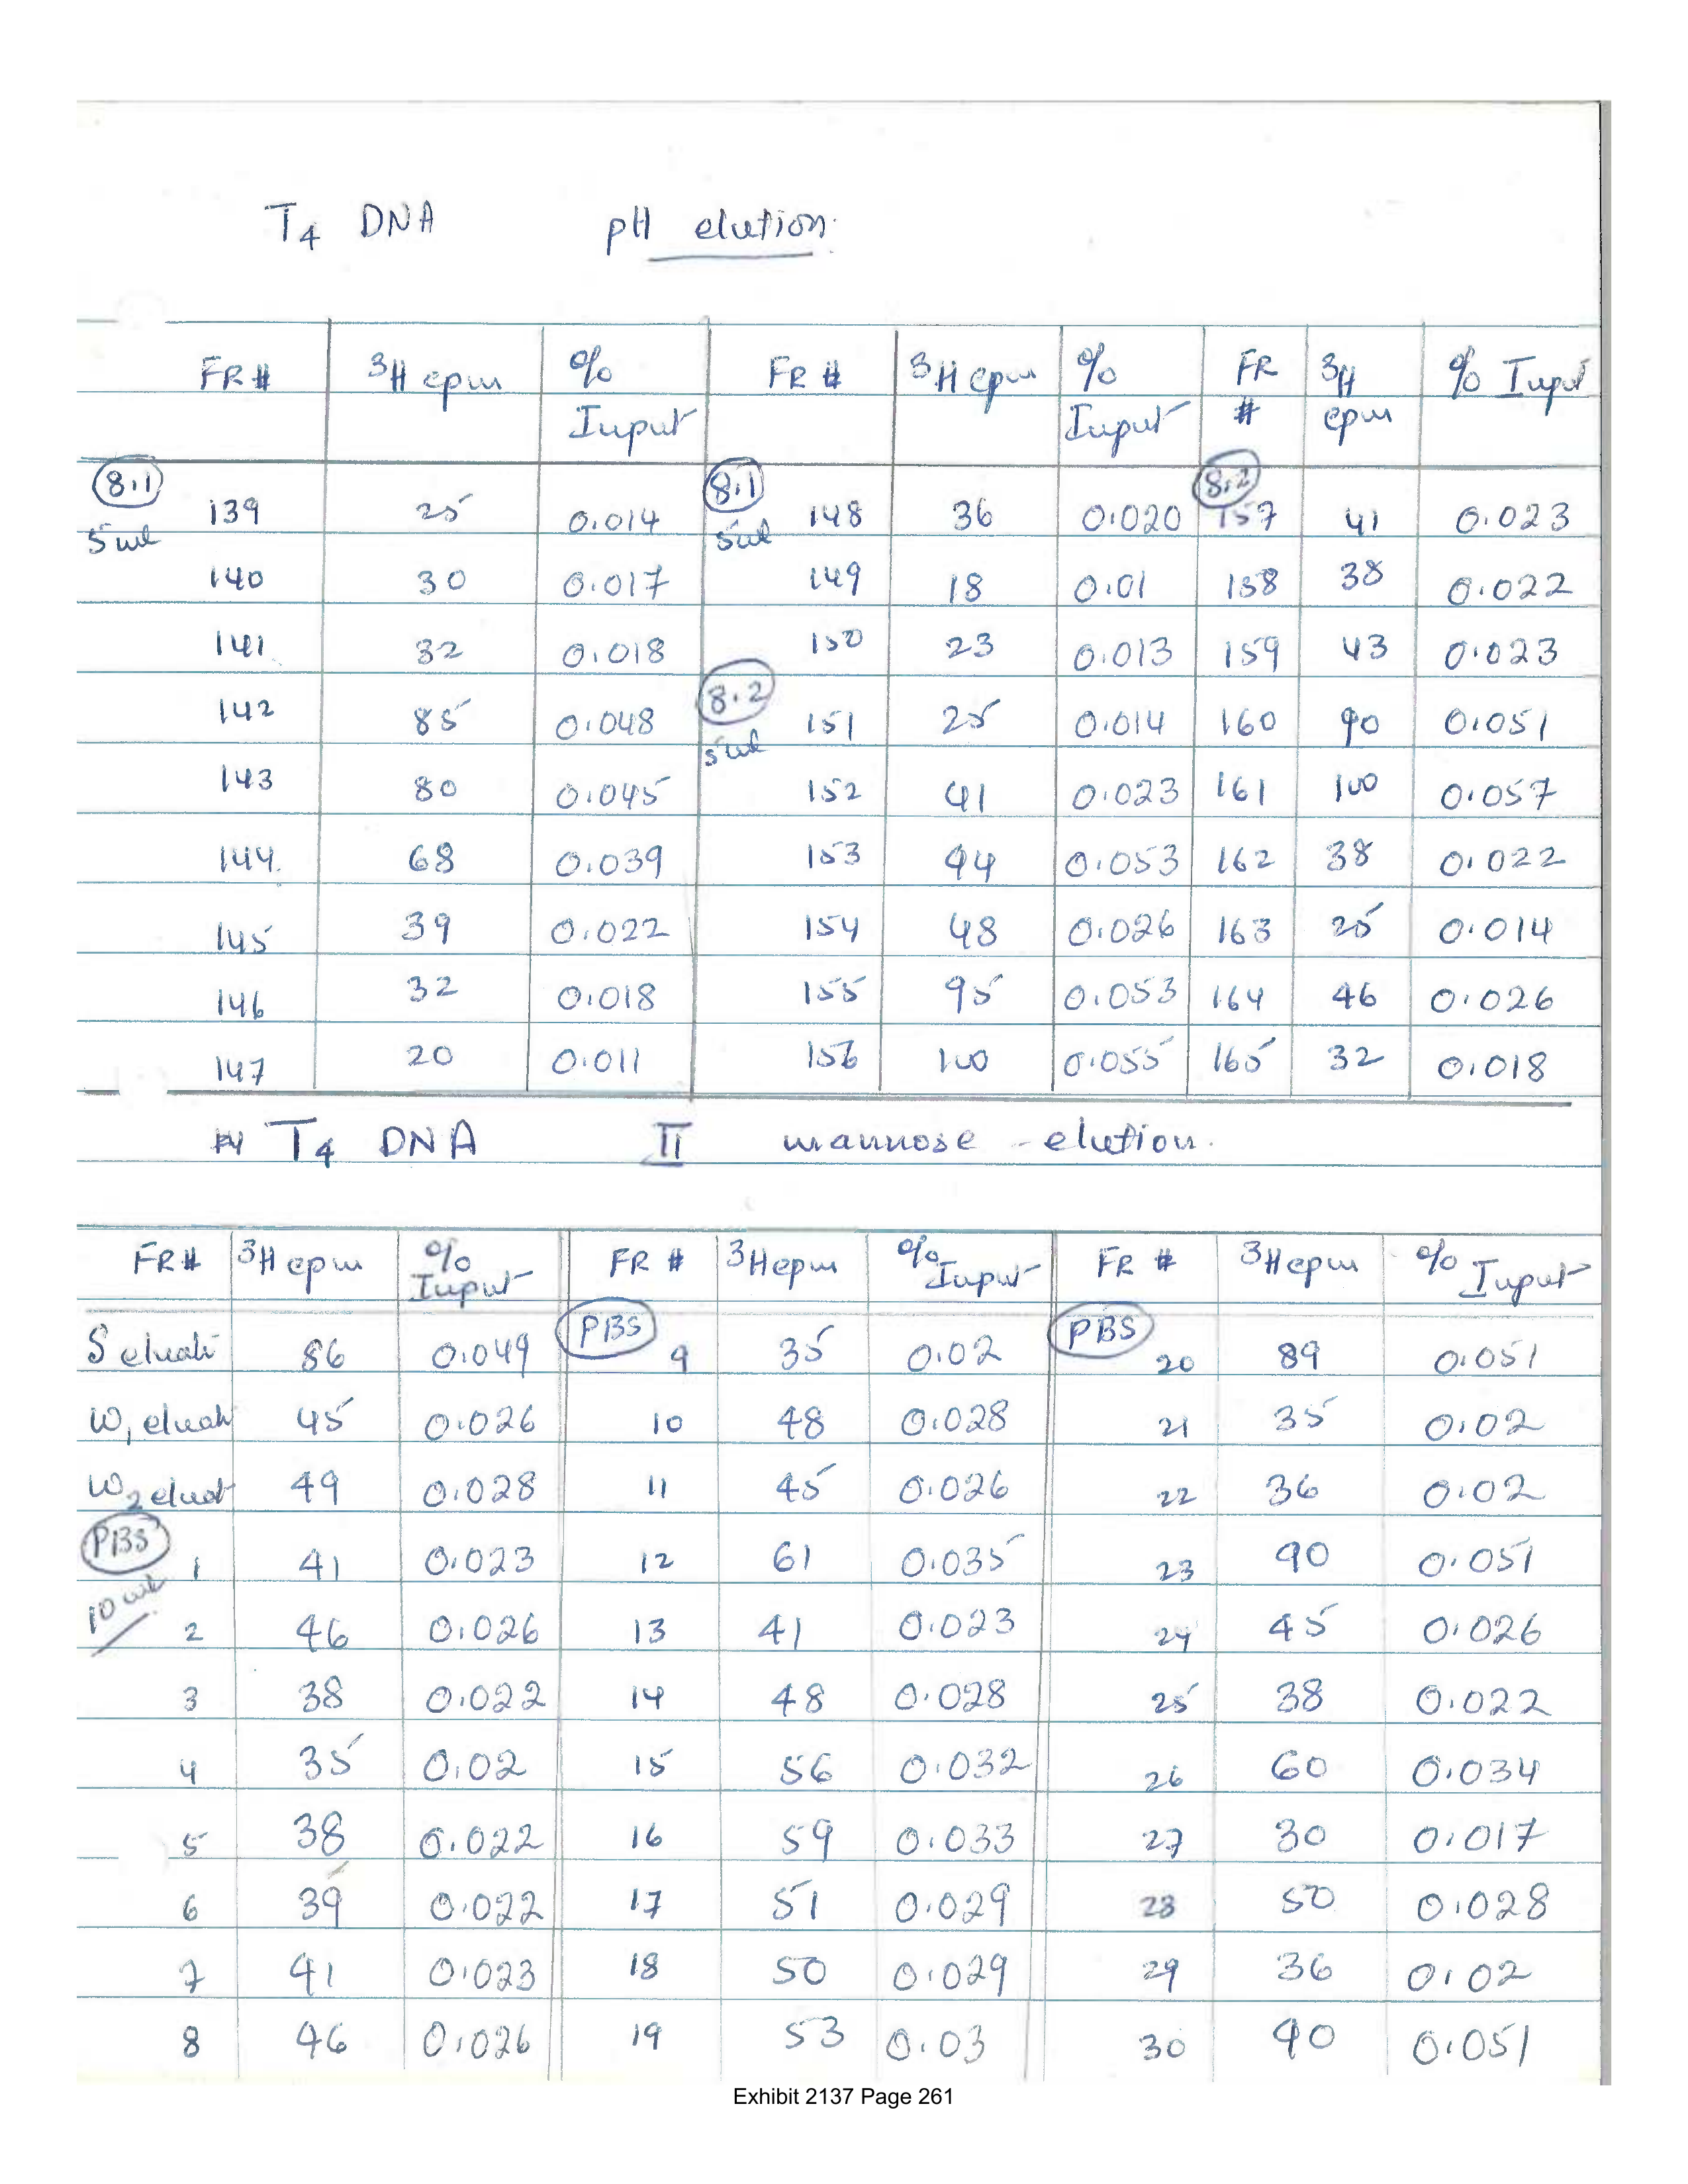 T4 DNA pH elution.
FR # 3H cpm % Input FR # 3H cpm % Input FR # 3H cpm % Input
8.1 5ml 139 25 0.014 8.1 5ml 148 36 0.020 8.2 157 41 0.023
140 30 0.017 149 18 0.01 158 38 0.022
141 32 0.018 150 23 0.013 159 43 0.023
142 85 0.048 8.2 5ml 151 25 0.014 160 90 0.051
143 80 0.045 152 41 0.023 161 100 0.057
144. 68 0.039 153 94 0.053 162 38 0.022
145 39 0.022 154 48 0.026 163 25 0.014
146 32 0.018 155 95 0.053 164 46 0.026
147 20 0.011 156 100 0.055 165 32 0.018
T4 DNA II mannose - elution.
FR # 3H cpm % Input FR # 3H cpm % Input FR # 3H cpm % Input
S eluate 86 0.049 PBS 9 35 0.02 PBS 20 89 0.051
W1 eluate 45 0.026 10 48 0.028 21 35 0.02
W2 eluate 49 0.028 11 45 0.026 22 36 0.02
PBS 1 41 0.023 12 61 0.035 23 90 0.051
10 ml 2 46 0.026 13 41 0.023 24 45 0.026
3 38 0.022 14 48 0.028 25 38 0.022
4 35 0.02 15 56 0.032 26 60 0.034
5 38 0.022 16 59 0.033 27 30 0.017
6 39 0.022 17 51 0.029 28 50 0.028
7 41 0.023 18 50 0.029 29 36 0.02
8 46 0.026 19 53 0.03 30 90 0.051
Exhibit 2137 Page 261